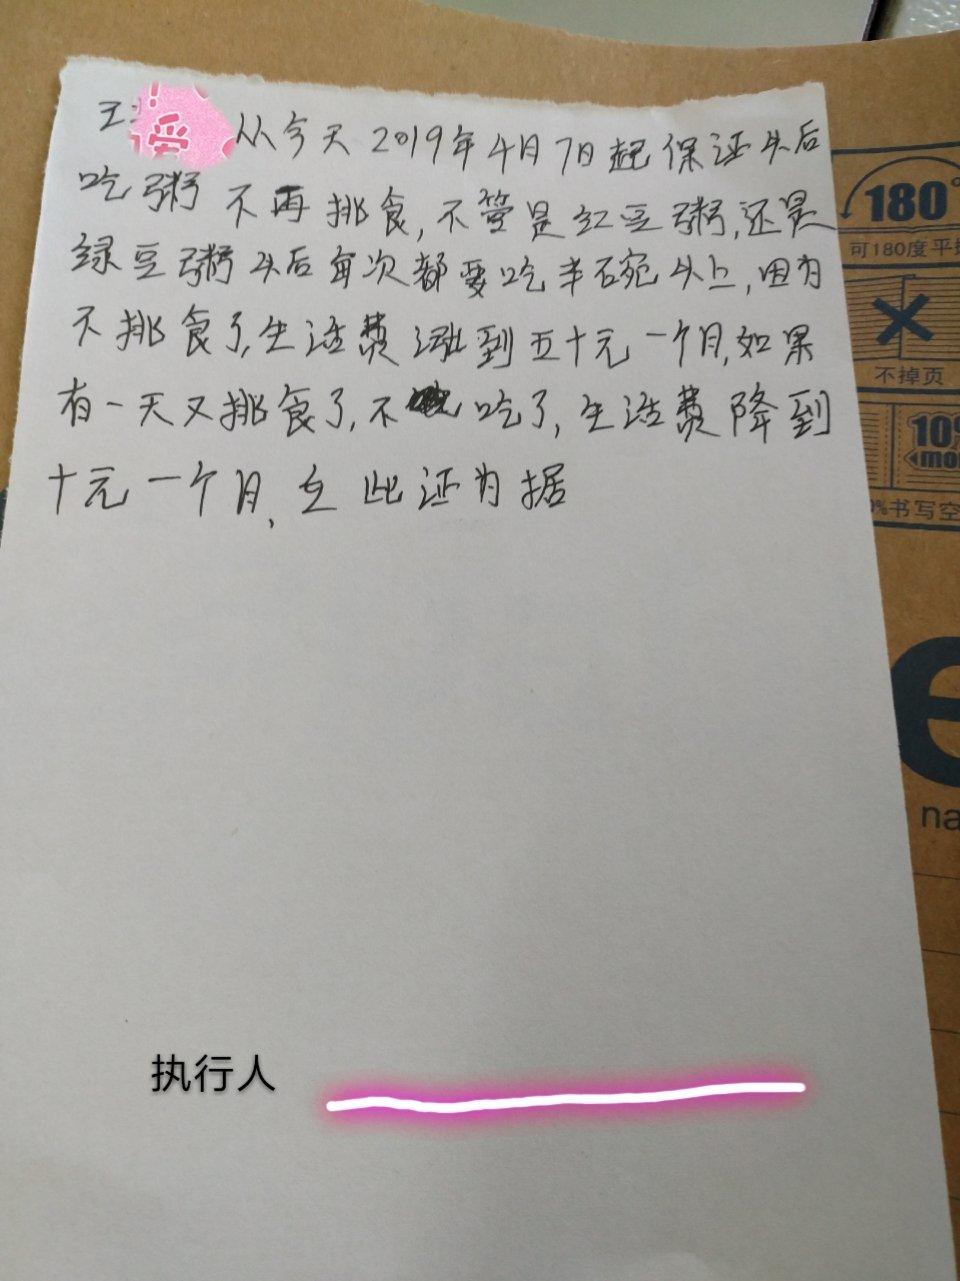 王
爱
从今天2019年4月7日起保证头后
吃粥不再挑食,不管是红豆粥,还是
绿豆粥头后每次都要吃半碗头上,因为
不挑食了,生活费涨到五十元一个月,如果
有一天又挑食了,不吃了,生活费降到
十元一个月,立此证为据
执行人
180°
可180度平
不掉页
10%
mo
0%书写空
e
na